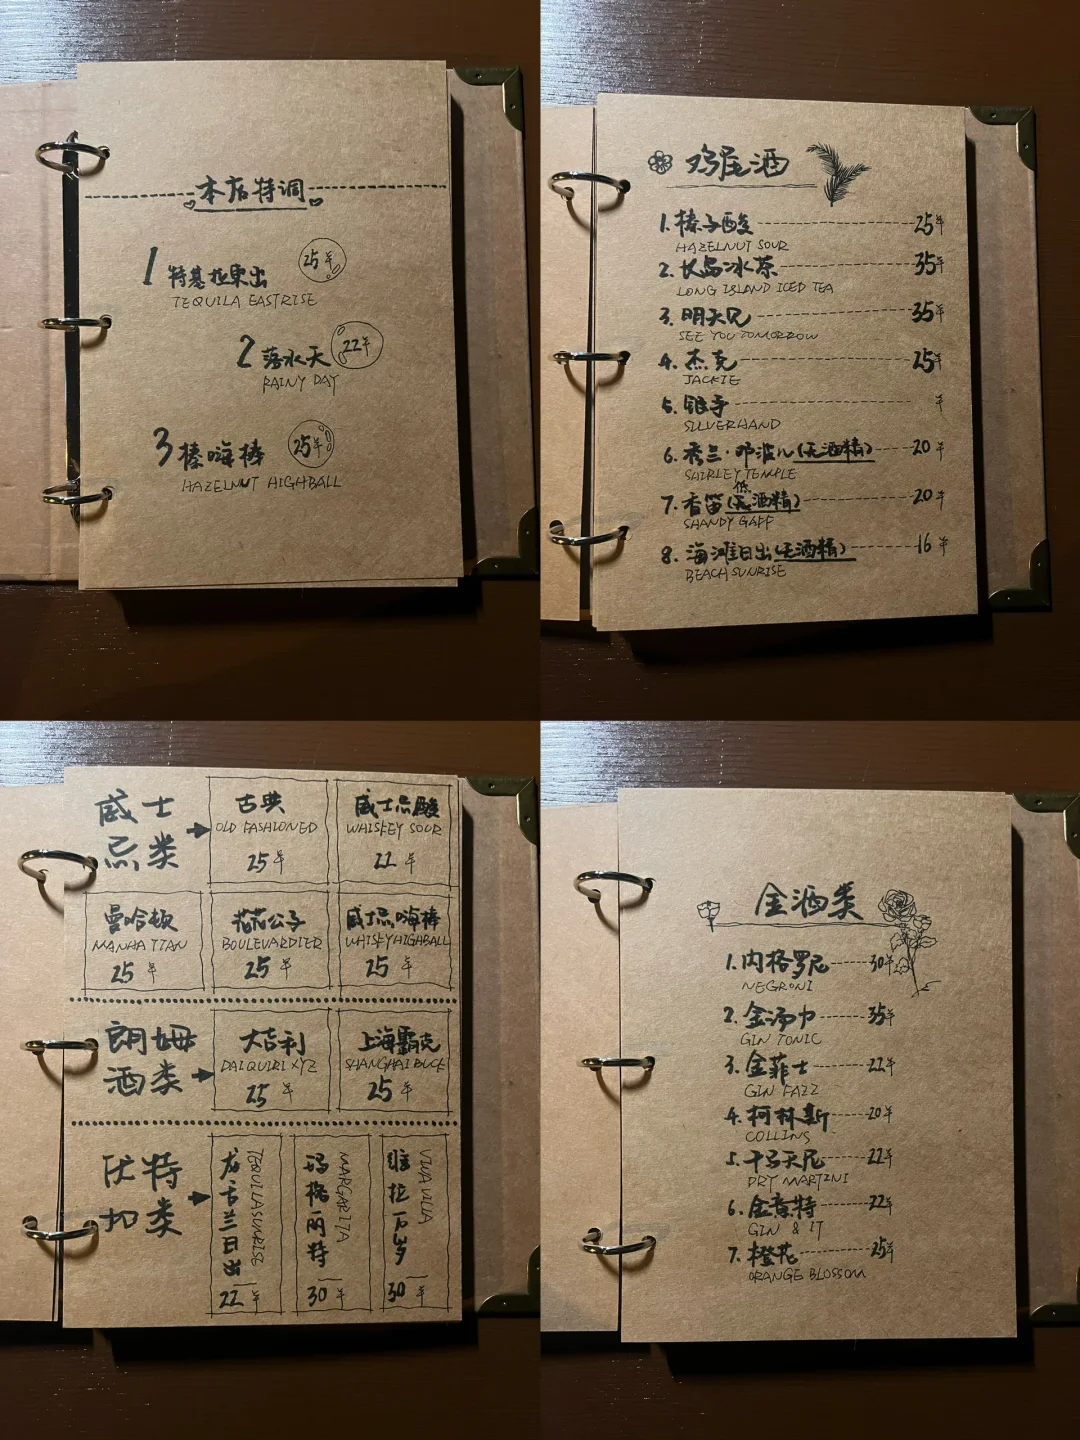 本店特调
1 特基拉東出 25半
TEQUILA EASTRISE
2 落水天 22半
RAINY DAY
3 榛嗨棒 25半
HAZELNUT HIGHBALL
鸡尾酒
1. 榛子酸 25半
HAZELNUT SOUR
2. 长岛冰茶 35半
LONG ISLAND ICED TEA
3. 明天见 35半
SEE YOU TOMORROW
4. 杰克 25半
JACKIE
5. 银手 半
SILVERHAND
6. 秀兰·邓波儿(无酒精) 20半
SHIRLEY TEMPLE
低
7. 香笛(无酒精) 20半
SHANDY GAFF
8. 海滩日出(无酒精) 16半
BEACH SUNRISE
威士忌类
古典
OLD FASHIONED
25半
威士忌酸
WHISKEY SOUR
22半
曼哈顿
MANHATTAN
25半
花花公子
BOULEVARDIER
25半
威士忌嗨棒
WHISKY HIGHBALL
25半
朗姆酒类
大吉利
DAIQUIRI XYZ
25半
上海霸克
SHANGHAI BUCK
25半
伏特加类
龙舌兰日出
TEQUILA SUNRISE
22半
玛格丽特
MARGARITA
30半
维拉万岁
VIVA VILLA
30半
金酒类
1. 内格罗尼 30半
NEGRONI
2. 金汤力 35半
GIN TONIC
3. 金菲士 22半
GIN FAZZ
4. 柯林斯 20半
COLLINS
5. 干马天尼 22半
DRY MARTINI
6. 金意特 22半
GIN & IT
7. 橙花 25半
ORANGE BLOSSOM